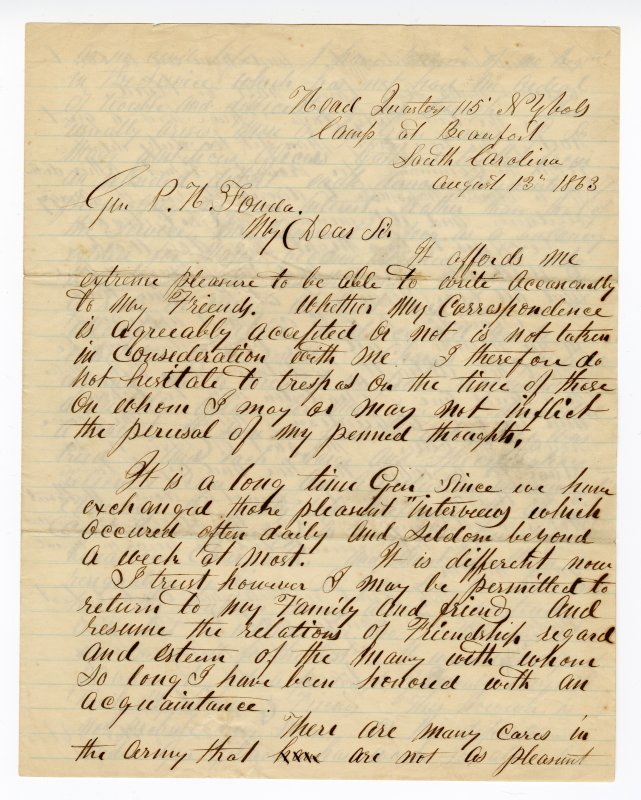 Head Quarters 115" N.Y. Vols
Camp at Beaufort
South Carolina
August 13th 1863
Gen P. H. Fonda.
My Dear Sir
It affords me
extreme pleasure to be able to write occasionally
to my Friends. Whether my Correspondence
is agreeably accepted or not is not taken
in Consideration with me. I therefore do
not hesitate to trespas on the time of those
on whom I may or may not inflict
the perusal of my penned thoughts.
It is a long time Gen since we have
exchanged those pleasant "interviews which
occured often daily and seldom beyond
a week at most. It is different now
I trust however I may be permitted to
return to my Family and friends and
resume the relations of Friendship regard
and esteem of the many with whom
so long I have been honored with an
acquaintance.
There are many cares in
the army that are not as pleasant